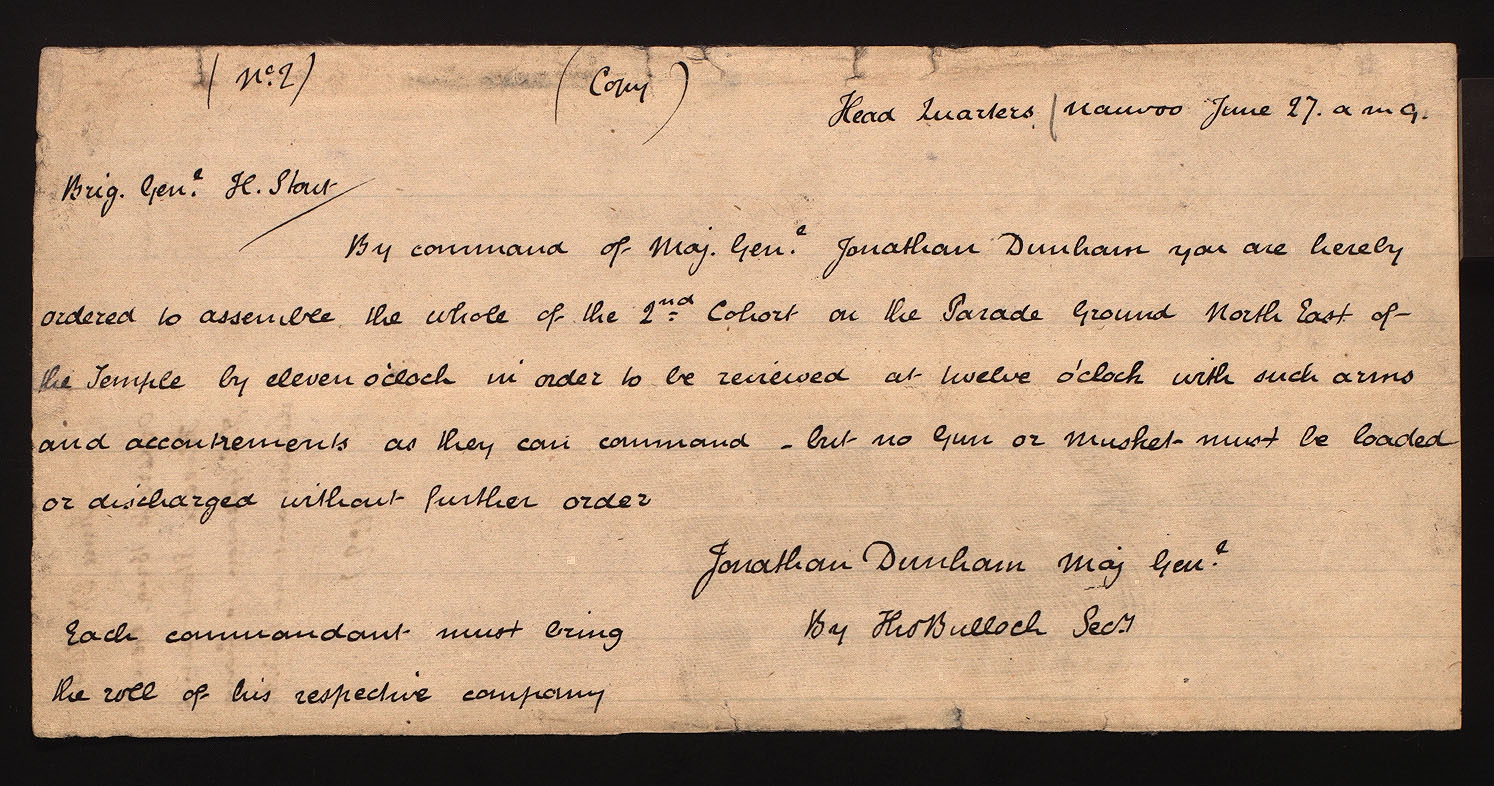 (No. 2) (Copy)
Head Quarters / Nauvoo June 27. a m 9.
Brig. Genl. H. Stout
By command of Maj. Genl. Jonathan Dunham you are hereby
ordered to assemble the whole of the 2nd Cohort on the Parade Ground North East of
the Temple by eleven o'clock in order to be reviewed at twelve o'clock with such arms
and accoutrements as they can command - but no Gun or Musket must be loaded
or discharged without further order
Jonathan Dunham Maj Genl.
By Bulloch Secy
Each commandant must bring
the roll of his respective company